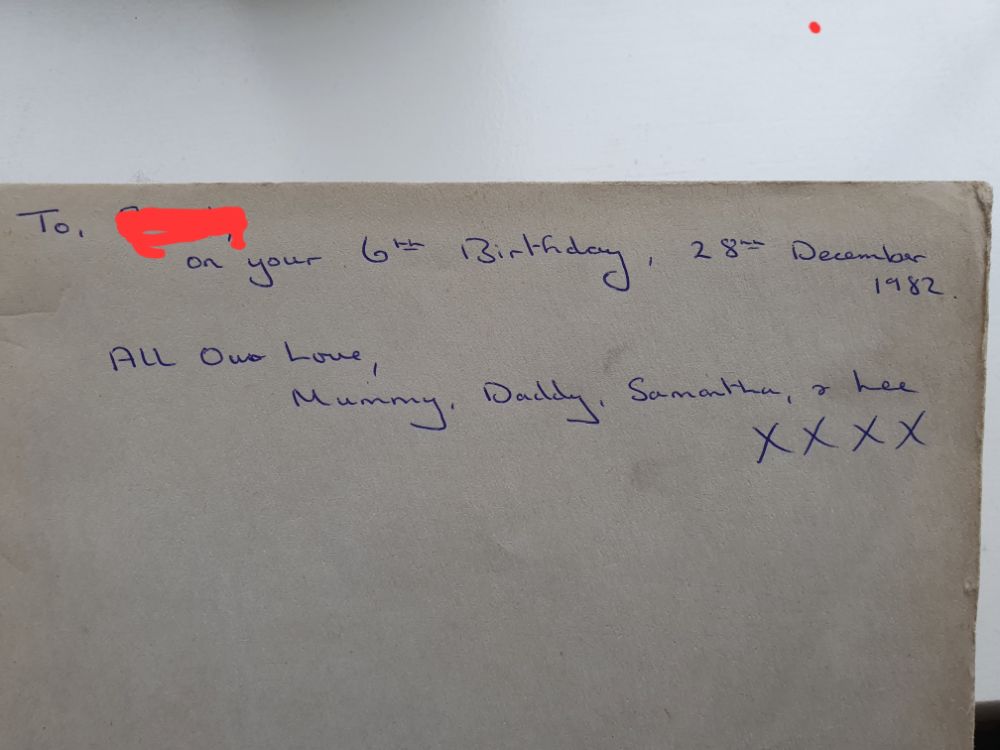 To,
on your 6th Birthday, 28th December
1982.
ALL Our Love,
Mummy, Daddy, Samantha, & Lee
X X X X